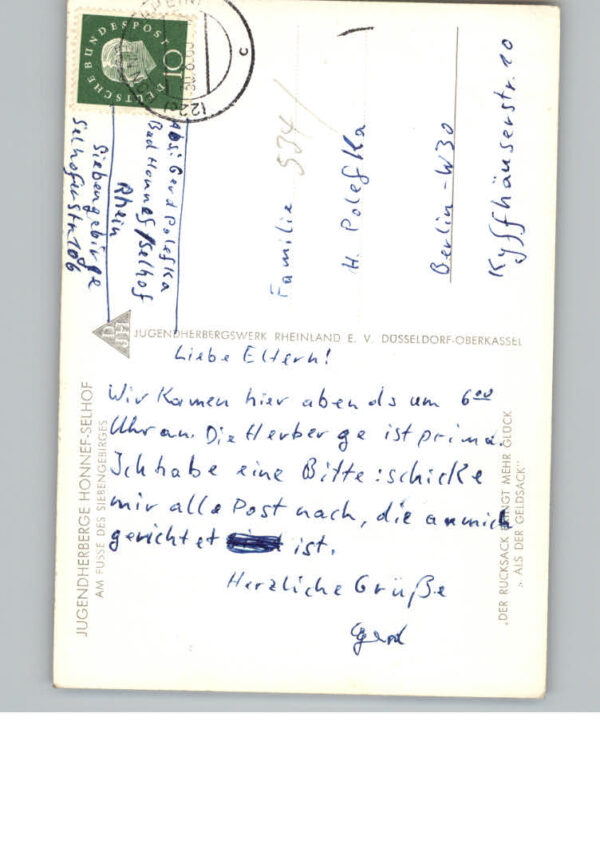 DEUTSCHE BUNDESPOST
10
(22c)
c
Abs: Gerd Polefka
Bad Honnef/Selhof
Rhein
Siebengebirge
Selhoferstr. 106
534/
Familie
H. Polefka
Berlin-W30
Kyffhäuserstr. 10
JUGENDHERBERGSWERK RHEINLAND E. V. DÜSSELDORF-OBERKASSEL
Liebe Eltern!
Wir kamen hier abends um 6⁰⁰
Uhr an. Die Herberge ist prima.
Ich habe eine Bitte: schicke
mir alle Post nach, die an mich
gerichtet ist.
Herzliche Grüße
Gerd
JUGENDHERBERGE HONNEF-SELHOF
AM FUSSE DES SIEBENGEBIRGES
„DER RUCKSACK BRINGT MEHR GLÜCK
ALS DER GELDSACK"